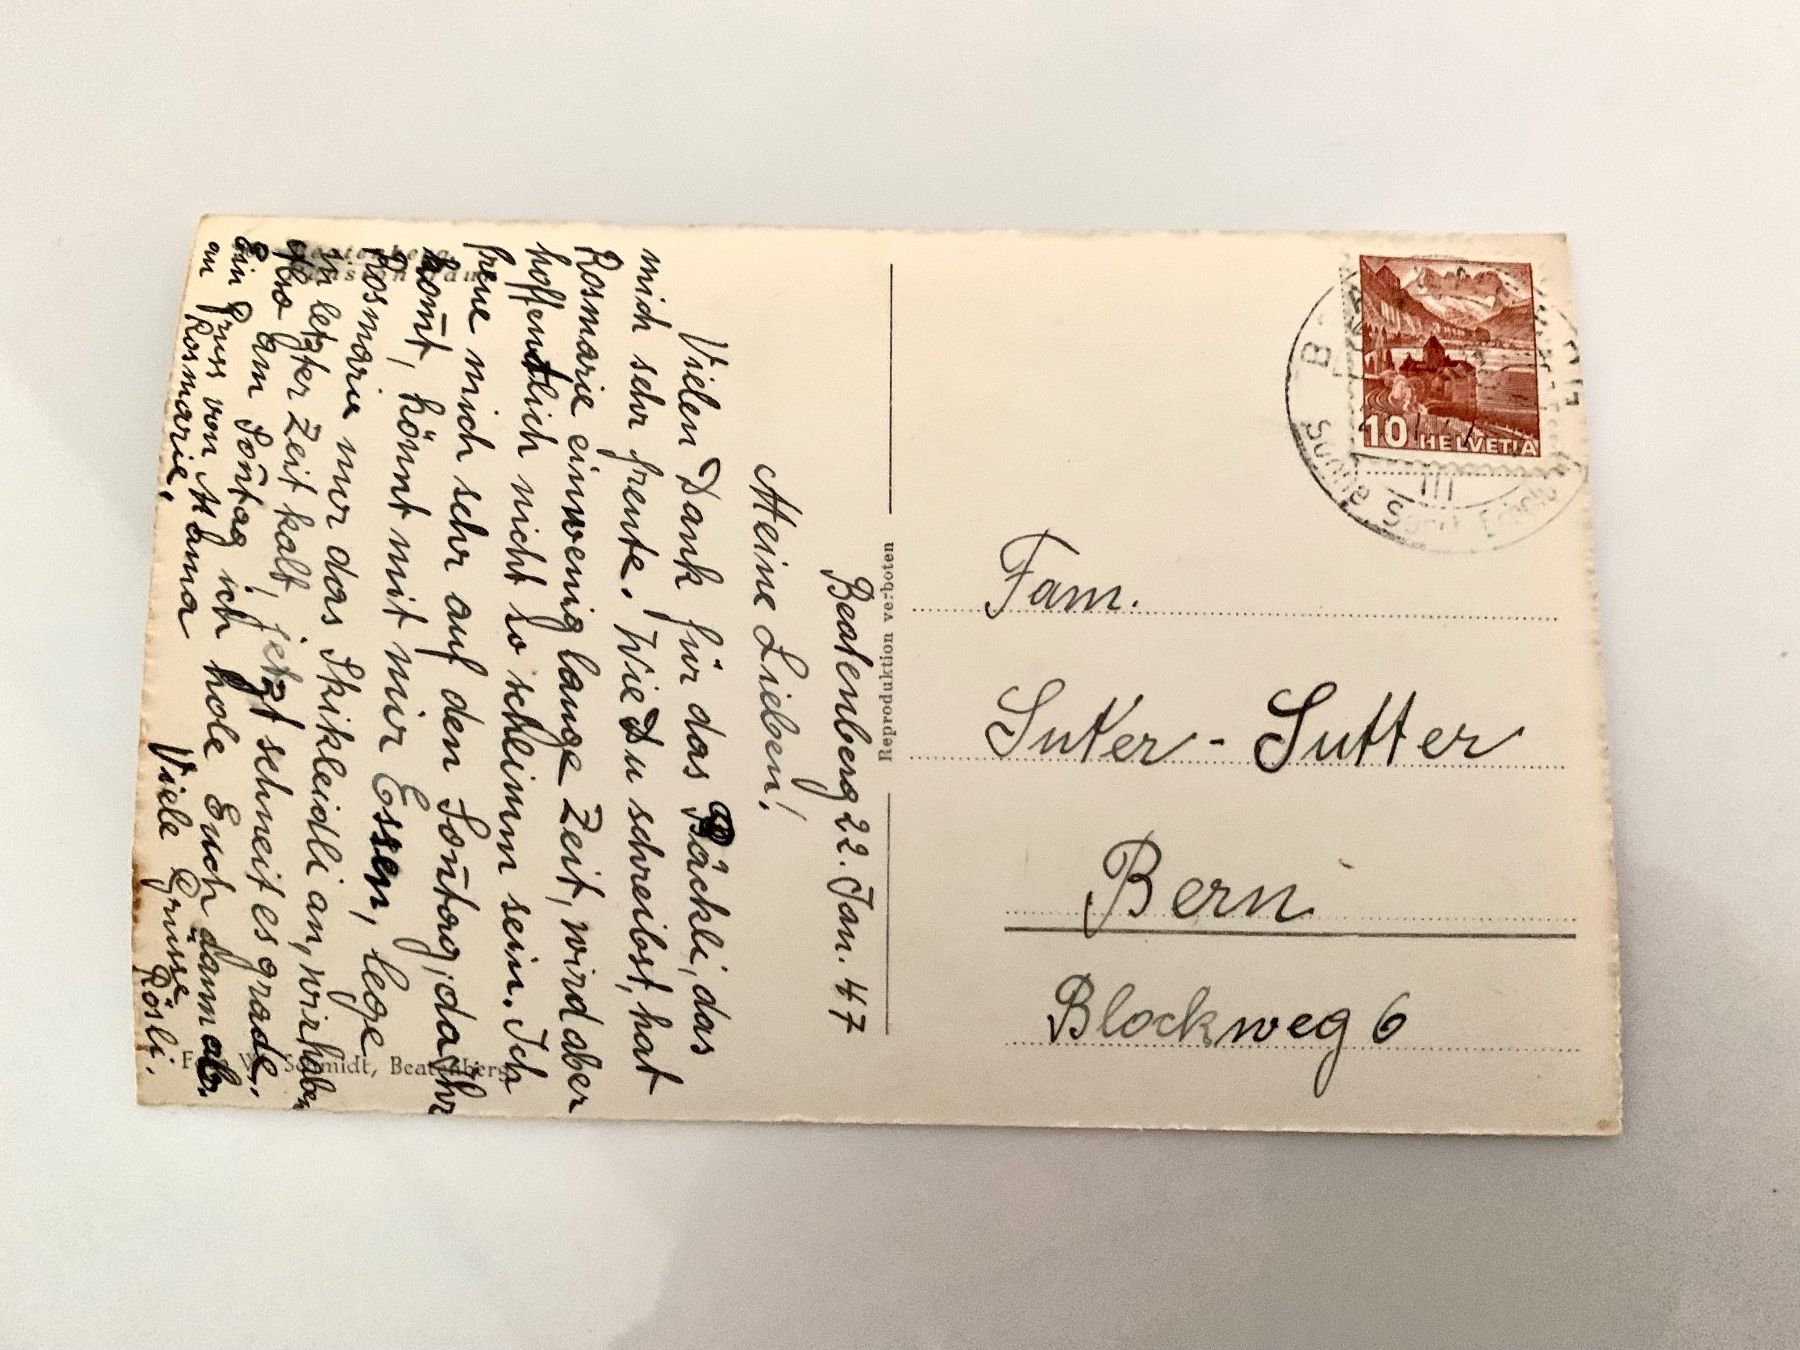 Beatenberg 22. Jan. 47
Meine Lieben!
Vielen Dank für das Päckli, das
mich sehr freute. Wie Du schreibst, hat
Rosmarie einwenig lange Zeit, wird aber
hoffentlich nicht so schlimm sein. Ich
freue mich sehr auf den Son̄tag, da Ihr
kom̄t, könnt mit mir Essen, lege
Rosmarie nur das Skikleidli an, wir haben
in letzter Zeit kalt, jetzt schneit es grade.
Also am Son̄tag ich hole Euch dann ab.
Ein Gruss von Mama
an Rosmarie.
Viele Grüsse
Rösli.
Beatenberg
Schmidt, Beatenberg
Reproduktion verboten
10 HELVETIA
III
Sonne Sport Erholg
Fam.
Suter-Sutter
Bern
Blockweg 6